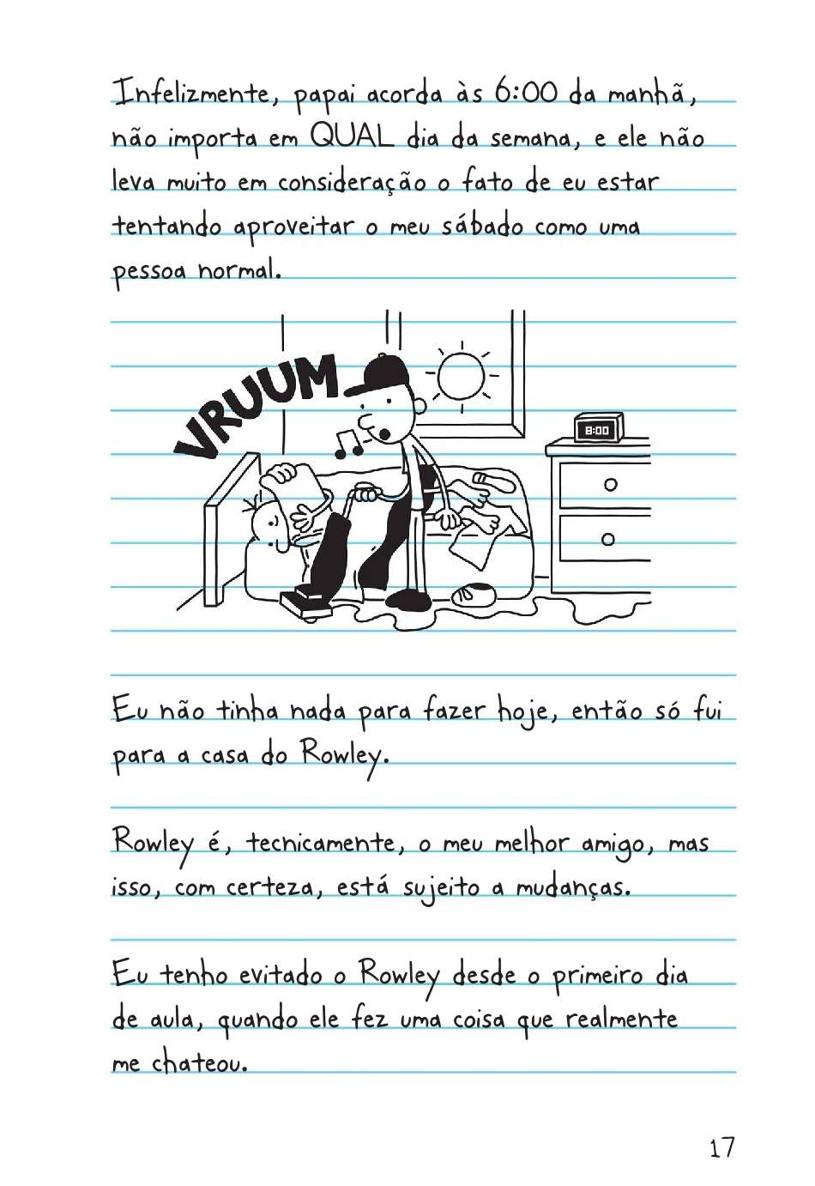 Infelizmente, papai acorda às 6:00 da manhã,
não importa em QUAL dia da semana, e ele não
leva muito em consideração o fato de eu estar
tentando aproveitar o meu sábado como uma
pessoa normal.
VRUUM
8:00
Eu não tinha nada para fazer hoje, então só fui
para a casa do Rowley.
Rowley é, tecnicamente, o meu melhor amigo, mas
isso, com certeza, está sujeito a mudanças.
Eu tenho evitado o Rowley desde o primeiro dia
de aula, quando ele fez uma coisa que realmente
me chateou.
17